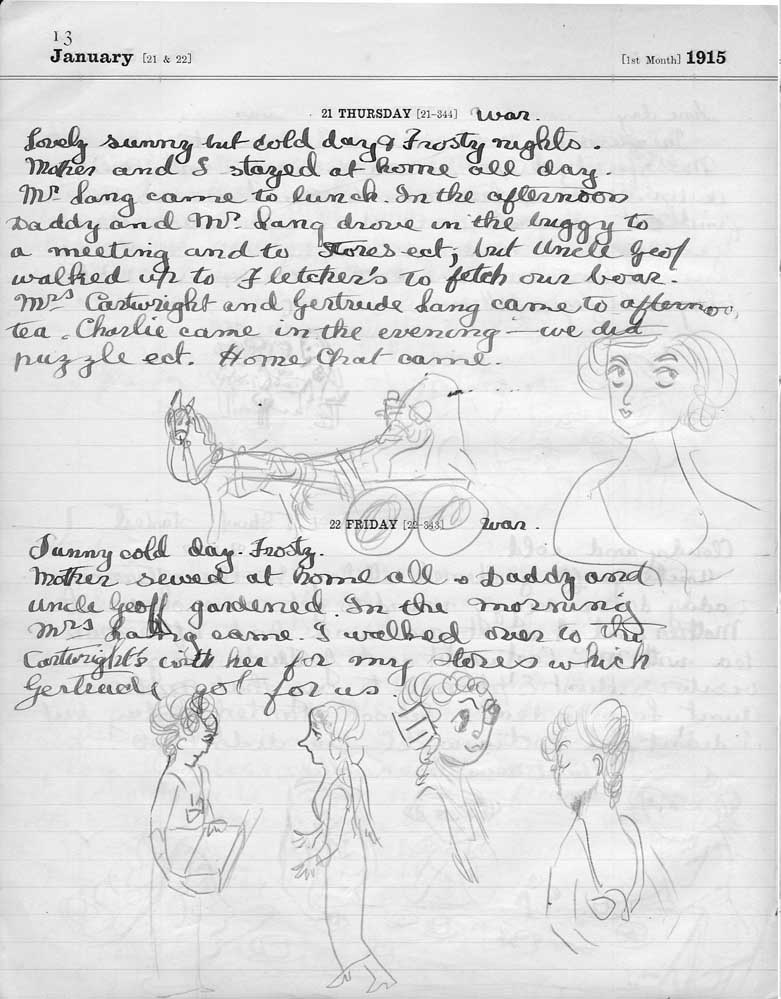 13
January [21 & 22] [1st Month] 1915
21 THURSDAY [21-344] War.
Lovely sunny but cold day & Frosty nights.
Mother and I stayed at home all day.
Mr Lang came to lunch. In the afternoon
Daddy and Mr. Lang drove in the buggy to
a meeting and to Stores ect, but Uncle Geof
walked up to Fletcher's to fetch our boar.
Mrs Cartwright and Gertrude Lang came to afternoo
tea. Charlie came in the evening — we did
puzzle ect. Home Chat came.
22 FRIDAY [22-343] War.
Sunny cold day. Frosty.
Mother sewed at home all & Daddy and
uncle Geoff gardened. In the morning
Mrs Lang came. I walked over to the
Cartwright's with her for my stores which
Gertrude got for us.